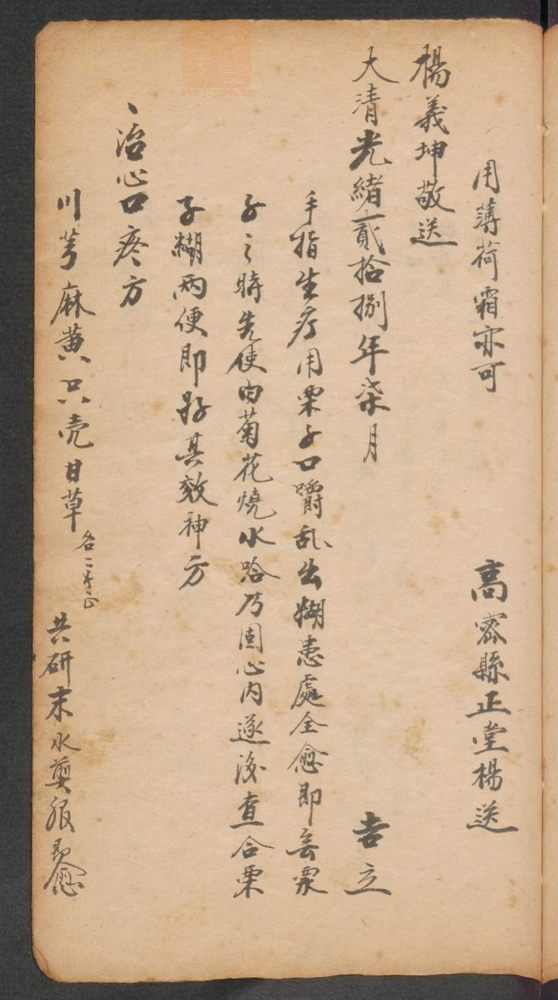 用薄荷霜亦可 高密縣正堂楊送
楊義坤敬送
大清光緒貳拾捌年柒月 吉立
手指生疔用栗子口嚼乱出糊患處全愈即妄栗
子之時先使白菊花燒水哈乃固心内遂後直合栗
子糊两便即好其效神方
、治心口疼方
川芎麻黄只壳甘草各二本正 共研末水煎服即愈